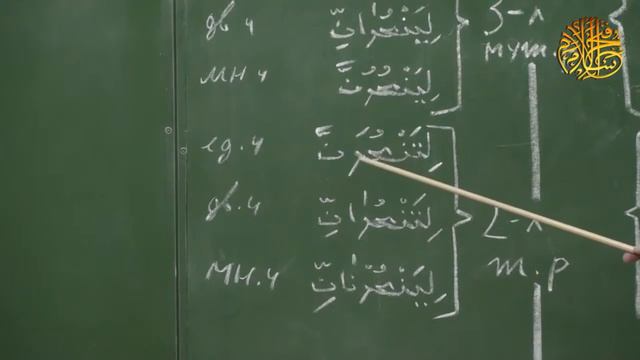 дв.ч لِيَنْصُرَانِّ 3-л
мн.ч لِيَنْصُرُنَّ муж.
ед.ч لِتَنْصُرَنَّ
дв.ч لِتَنْصُرَانِّ
мн.ч لِيَنْصُرْنَانِّ ж.р